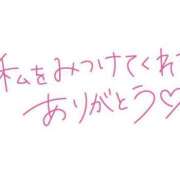 私をみつけてくれて
ありがとう♡